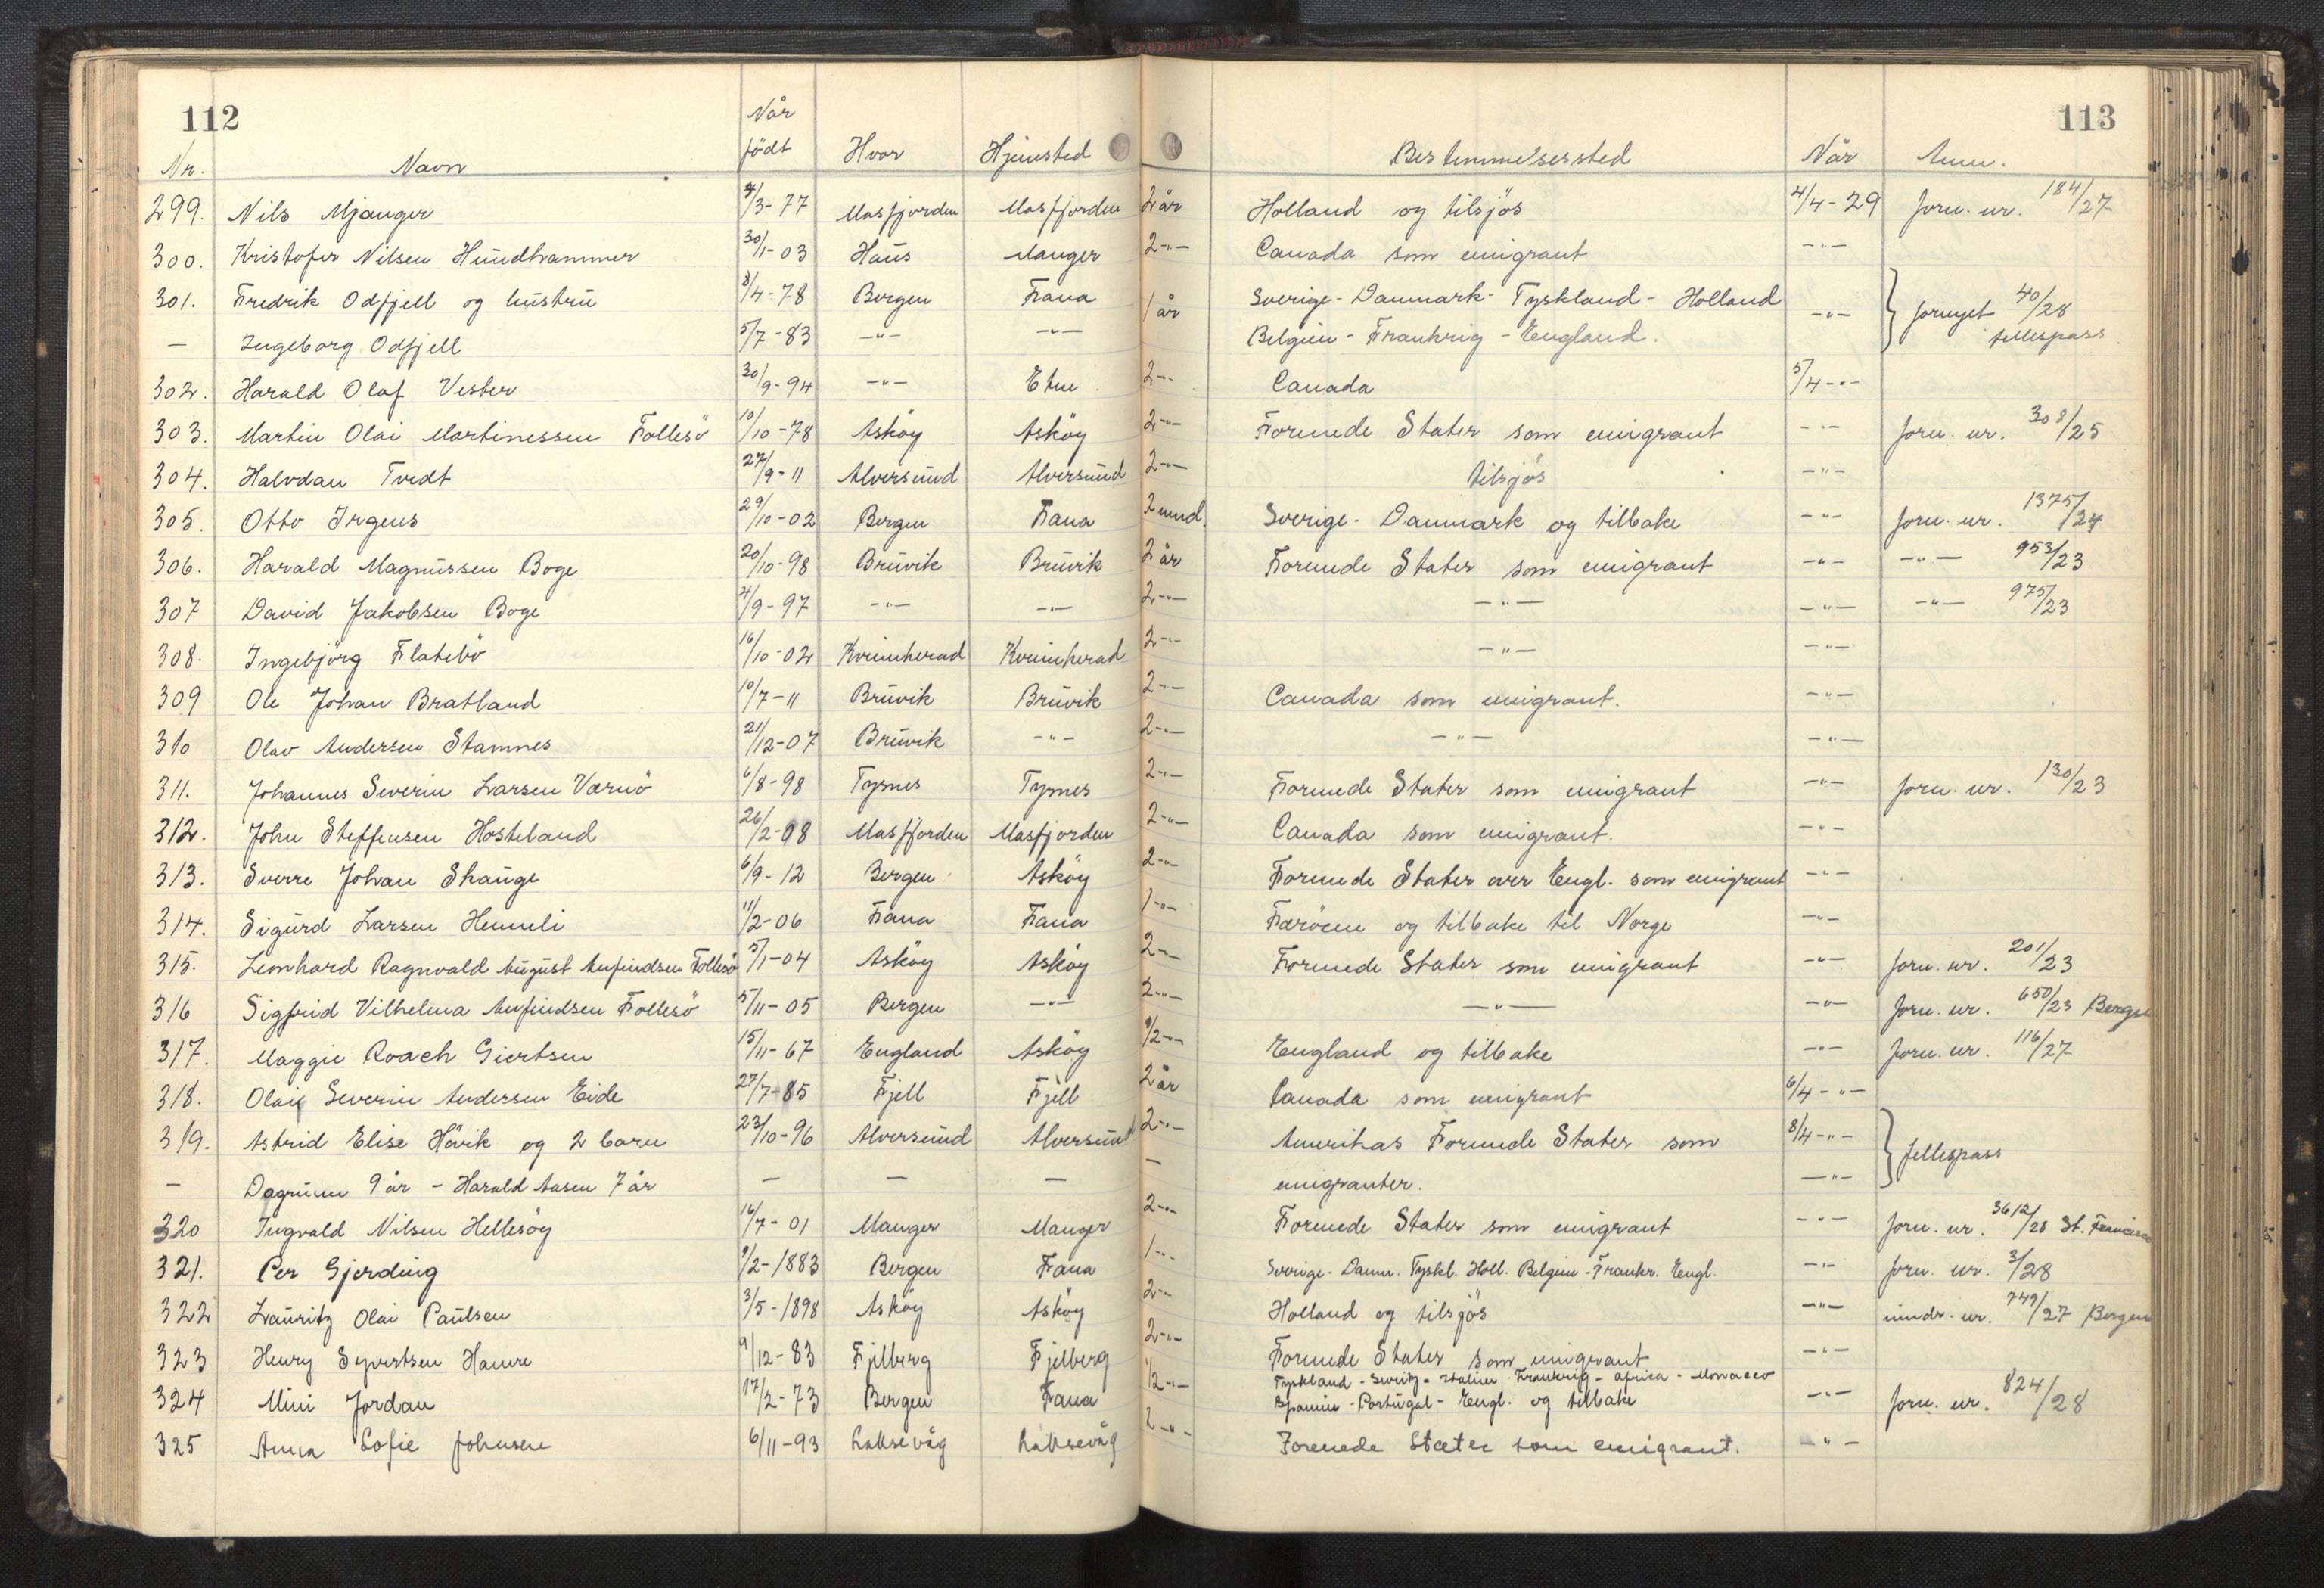 112
113
Nr. Navn Når födt Hvor Hjemsted Bestemmelsessted Når Anm.
299. Nils Mjanger 4/3-77 Masfjorden Masfjorden 2 år Holland og tilsjös 4/4-29 forn. nr. 184/27
300. Kristofer Nilsen Hundhammer 30/1-03 Haus Manger 2-"- Canada som emigrant -"-
301. Fredrik Odfjell og hustru 8/4-78 Bergen Fana 1 år Sverige-Danmark-Tyskland-Holland -"- fornyet 40/28
- Ingeborg Odfjell 5/7-83 -"- -"- Belgien-Frankrig-England. fellespass
302. Harald Olaf Vester 30/9-94 -"- Etne 2-"- Canada 5/4-"-
303. Martin Olai Martinessen Follesö 10/10-78 Asköy Asköy 2-"- Forenede Stater som emigrant -"- forn. nr. 308/25
304. Halvdan Tvedt 27/9-11 Alversund Alversund 2-"- tilsjös -"-
305. Otto Irgens 29/10-02 Bergen Fana 2 mnd. Sverige-Danmark og tilbake -"- forn. nr. 1375/24
306. Harald Magnussen Boge 20/10-98 Bruvik Bruvik 2 år Forenede Stater som emigrant -"- -"- 953/23
307 David Jakobsen Boge 4/9-97 -"- -"- 2-"- -"- -"- -"- 975/23
308. Ingebjörg Flatebö 16/10-02 Kvinnherad Kvinnherad 2-"- -"- -"-
309 Ole Johan Bratland 10/7-11 Bruvik Bruvik 2-"- Canada som emigrant. -"-
310 Olav Andersen Stamnes 21/12-07 Bruvik -"- 2-"- -"- -"-
311. Johannes Severin Larsen Værnö 6/8-98 Tysnes Tysnes 2-"- Forenede Stater som emigrant -"- forn. nr. 130/23
312. John Steffensen Hosteland 26/2-08 Masfjorden Masfjorden 2-"- Canada som emigrant. -"-
313. Sverre Johan Skauge 6/9-12 Bergen Asköy 2-"- Forenede Stater over Engl. som emigrant -"-
314. Sigurd Larsen Henneli 11/2-06 Fana Fana 1-"- Færöene og tilbake til Norge -"-
315. Leonhard Ragnvald August Anfindsen Follesö 5/1-04 Asköy Asköy 2-"- Forenede Stater som emigrant -"- forn. nr. 201/23
316 Sigfrid Vilhelma Anfindsen Follesö 5/11-05 Bergen -"- 2-"- -"- -"- forn. nr. 650/23 Bergen
317. Maggie Roach Giertsen 15/11-67 England Asköy 1/2-"- England og tilbake -"- forn. nr. 116/27
318. Olai Severin Andersen Eide 27/7-85 Fjell Fjell 2 år Canada som emigrant 6/4-"-
319. Astrid Elise Hövik og 2 barn 23/10-96 Alversund Alversund 2-"- Amerikas Forenede Stater som 8/4-"- fellespass
- Dagrunn 9 år - Harald Aasen 7 år - - - - emigranter. -"-
320 Ingvald Nilsen Hellesöy 16/7-01 Manger Manger 2-"- Forenede Stater som emigrant -"- forn. nr. 3612/28 St. Francisco
321. Per Gjerding 9/2-1883 Bergen Fana 1-"- Sverige-Danm. Tyskl. Holl. Belgien-Frankr. Engl. -"- forn. nr. 3/28
322 Lauritz Olai Paulsen 3/5-1898 Asköy Asköy 2-"- Holland og tilsjös -"- inndr. nr. 749/27 Bergen
323 Henry Syvertsen Hamre 9/12-83 Fjelberg Fjelberg 2-"- Forenede Stater som emigrant -"-
324 Mimi Jordan 17/2-73 Bergen Fana 1/2-"- Tyskland-Sveitz-Italien Frankrig-Africa-Monacco
Spanien-Portugal-Engl. og tilbake -"- forn. nr. 824/28
325 Anna Sofie Johnsen 6/11-93 Laksevåg Laksevåg 2-"- Forenede Stater som emigrant. -"-